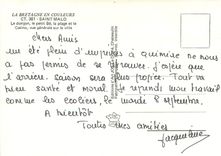 LA BRETAGNE EN COULEURS
CT. 387 - SAINT MALO
Le donjon, le petit Bé, la plage et le
Casino, vue générale sur la ville
Chers Amis
un été plein d'imprévus à Quimiac ne nous
a pas permis de se retrouver. J'espère que
l'arrière saison sera plus propice. Tout va
bien santé et moral. Je reprends mon travail
comme les écoliers, le lundi 8 septembre.
A bientôt
Toutes mes amitiés
Jacqueline